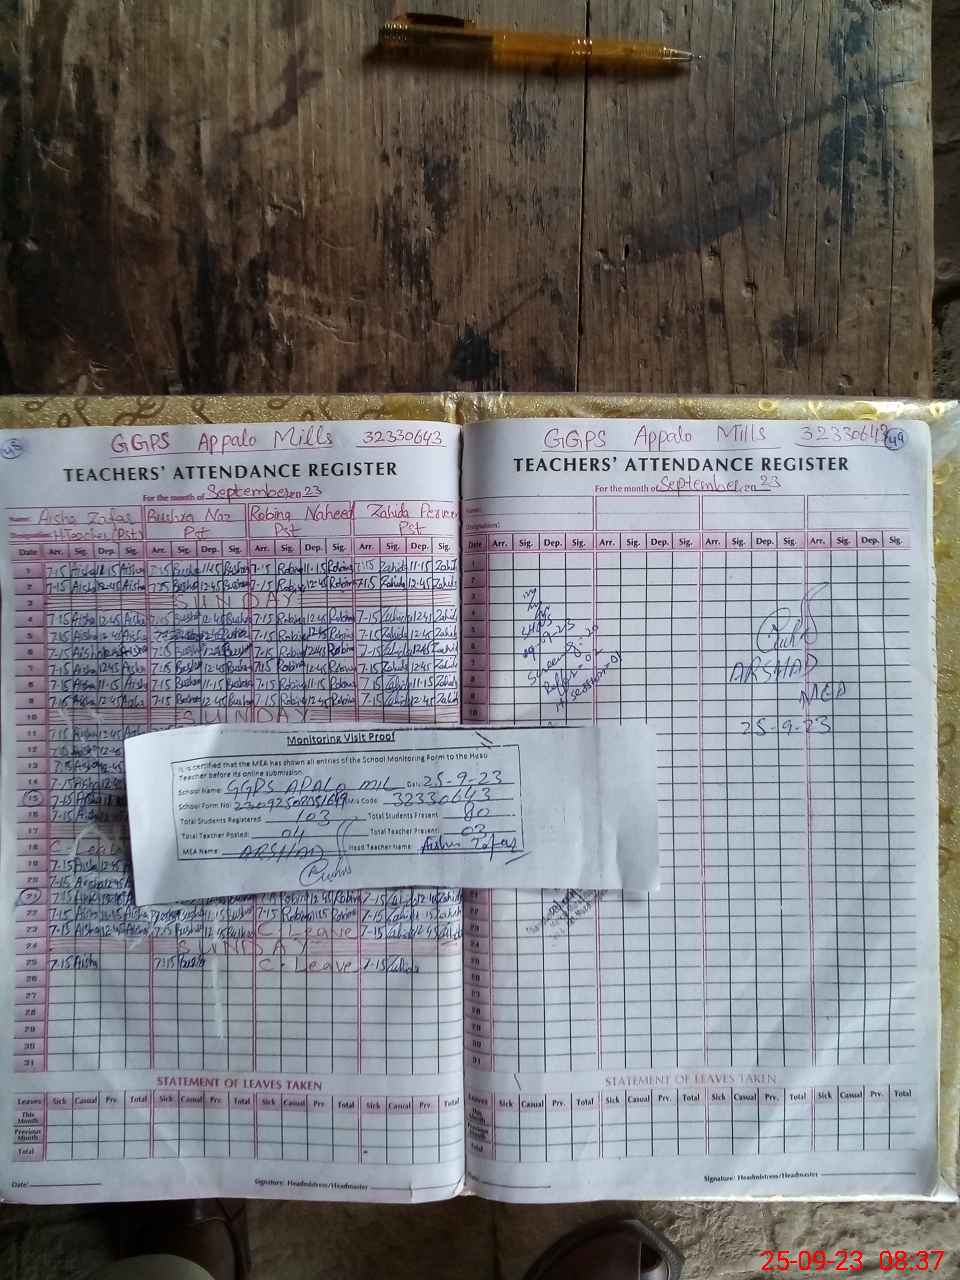 GGPS Appalo Mills 32330643
TEACHERS' ATTENDANCE REGISTER
For the month of September 23
Name: Aisha Zafar Bushra Naz Robina Naheed Zahida Perveen
Designation: H.Teacher (Pst) Pst Pst Pst
Date Arr. Sig. Dep. Sig. Arr. Sig. Dep. Sig. Arr. Sig. Dep. Sig. Arr. Sig. Dep. Sig.
1 7-15 Aisha 11-15 Aisha 7-15 Bushra 11-15 Bushra 7-15 Robina 11-15 Robina 7-15 Zahida 11-15 Zahida
2 7-15 Aisha 12-45 Aisha 7-15 Bushra 12-45 Bushra 7-15 Robina 12-45 Robina 7-15 Zahida 12-45 Zahida
3 SUNDAY
4 7-15 Aisha 12-45 Aisha 7-15 Bushra 12-45 Bushra 7-15 Robina 12-45 Robina 7-15 Zahida 12-45 Zahida
5 7-15 Aisha 12-45 Aisha 7-15 Bushra 12-45 Bushra 7-15 Robina 12-45 Robina 7-15 Zahida 12-45 Zahida
6 7-15 Aisha 12-45 Aisha 7-15 Bushra 12-45 Bushra 7-15 Robina 12-45 Robina 7-15 Zahida 12-45 Zahida
7 7-15 Aisha 12-45 Aisha 7-15 Bushra 12-45 Bushra 7-15 Robina 12-45 Robina 7-15 Zahida 12-45 Zahida
8 7-15 Aisha 11-15 Aisha 7-15 Bushra 11-15 Bushra 7-15 Robina 11-15 Robina 7-15 Zahida 11-15 Zahida
9 7-15 Aisha 12-45 Aisha 7-15 Bushra 12-45 Bushra 7-15 Robina 12-45 Robina 7-15 Zahida 12-45 Zahida
10 SUNDAY
11 7-15 Aisha 12-45
12 7-15 Aisha 12-45
13 7-15 Aisha 12-45
14 7-15 Aisha 12-45
15 7-15 Aisha
16 7-15 Aisha
17
18 C-Leave
19 7-15 Aisha 12-45
20 Aisha 12-45
21 7-15 Aisha 7-15 Zahida 12-45 Zahida
22 7-15 Aisha 11-15 Aisha Bushra 11-15 Bushra 7-15 Robina 11-15 Robina 7-15 Zahida 11-15 Zahida
23 7-15 Aisha 12-45 Aisha 7-15 Bushra 12-45 Bushra C-Leave 7-15 Zahida 12-45 Zahida
24 SUNDAY
25 7-15 Aisha 7-15 Bushra C-Leave 7-15 Zahida
26
27
28
29
30
31
STATEMENT OF LEAVES TAKEN
Leaves Sick Casual Prv. Total Sick Casual Prv. Total Sick Casual Prv. Total Sick Casual Prv. Total
This Month
Previous Month
Total
Date: Signature: Headmistress/Headmaster
Monitoring Visit Proof
It is certified that the MEA has shown all entries of the School Monitoring Form to the Head
Teacher before its online submission.
School Name: GGPS APALO MIL Date: 25-9-23
School Form No: Mis Code: 32330643
Total Students Registered: 103 Total Students Present: 80
Total Teacher Posted: 04 Total Teacher Present: 03
MEA Name: ARSHAD Head Teacher Name: Aisha Zafar
GGPS Appalo Mills 32330643 49
TEACHERS' ATTENDANCE REGISTER
For the month of September 23
Name:
Designation:
Date Arr. Sig. Dep. Sig. Arr. Sig. Dep. Sig. Arr. Sig. Dep. Sig. Arr. Sig. Dep. Sig.
1
2
3
4
5
6
7
8
9
10
ARSHAD
MEA
25-9-23
22
23
24
25
26
27
28
29
30
31
STATEMENT OF LEAVES TAKEN
Leaves Sick Casual Prv. Total Sick Casual Prv. Total Sick Casual Prv. Total Sick Casual Prv. Total
This Month
Previous Month
Total
Signature: Headmistress/Headmaster
25-09-23 08:37